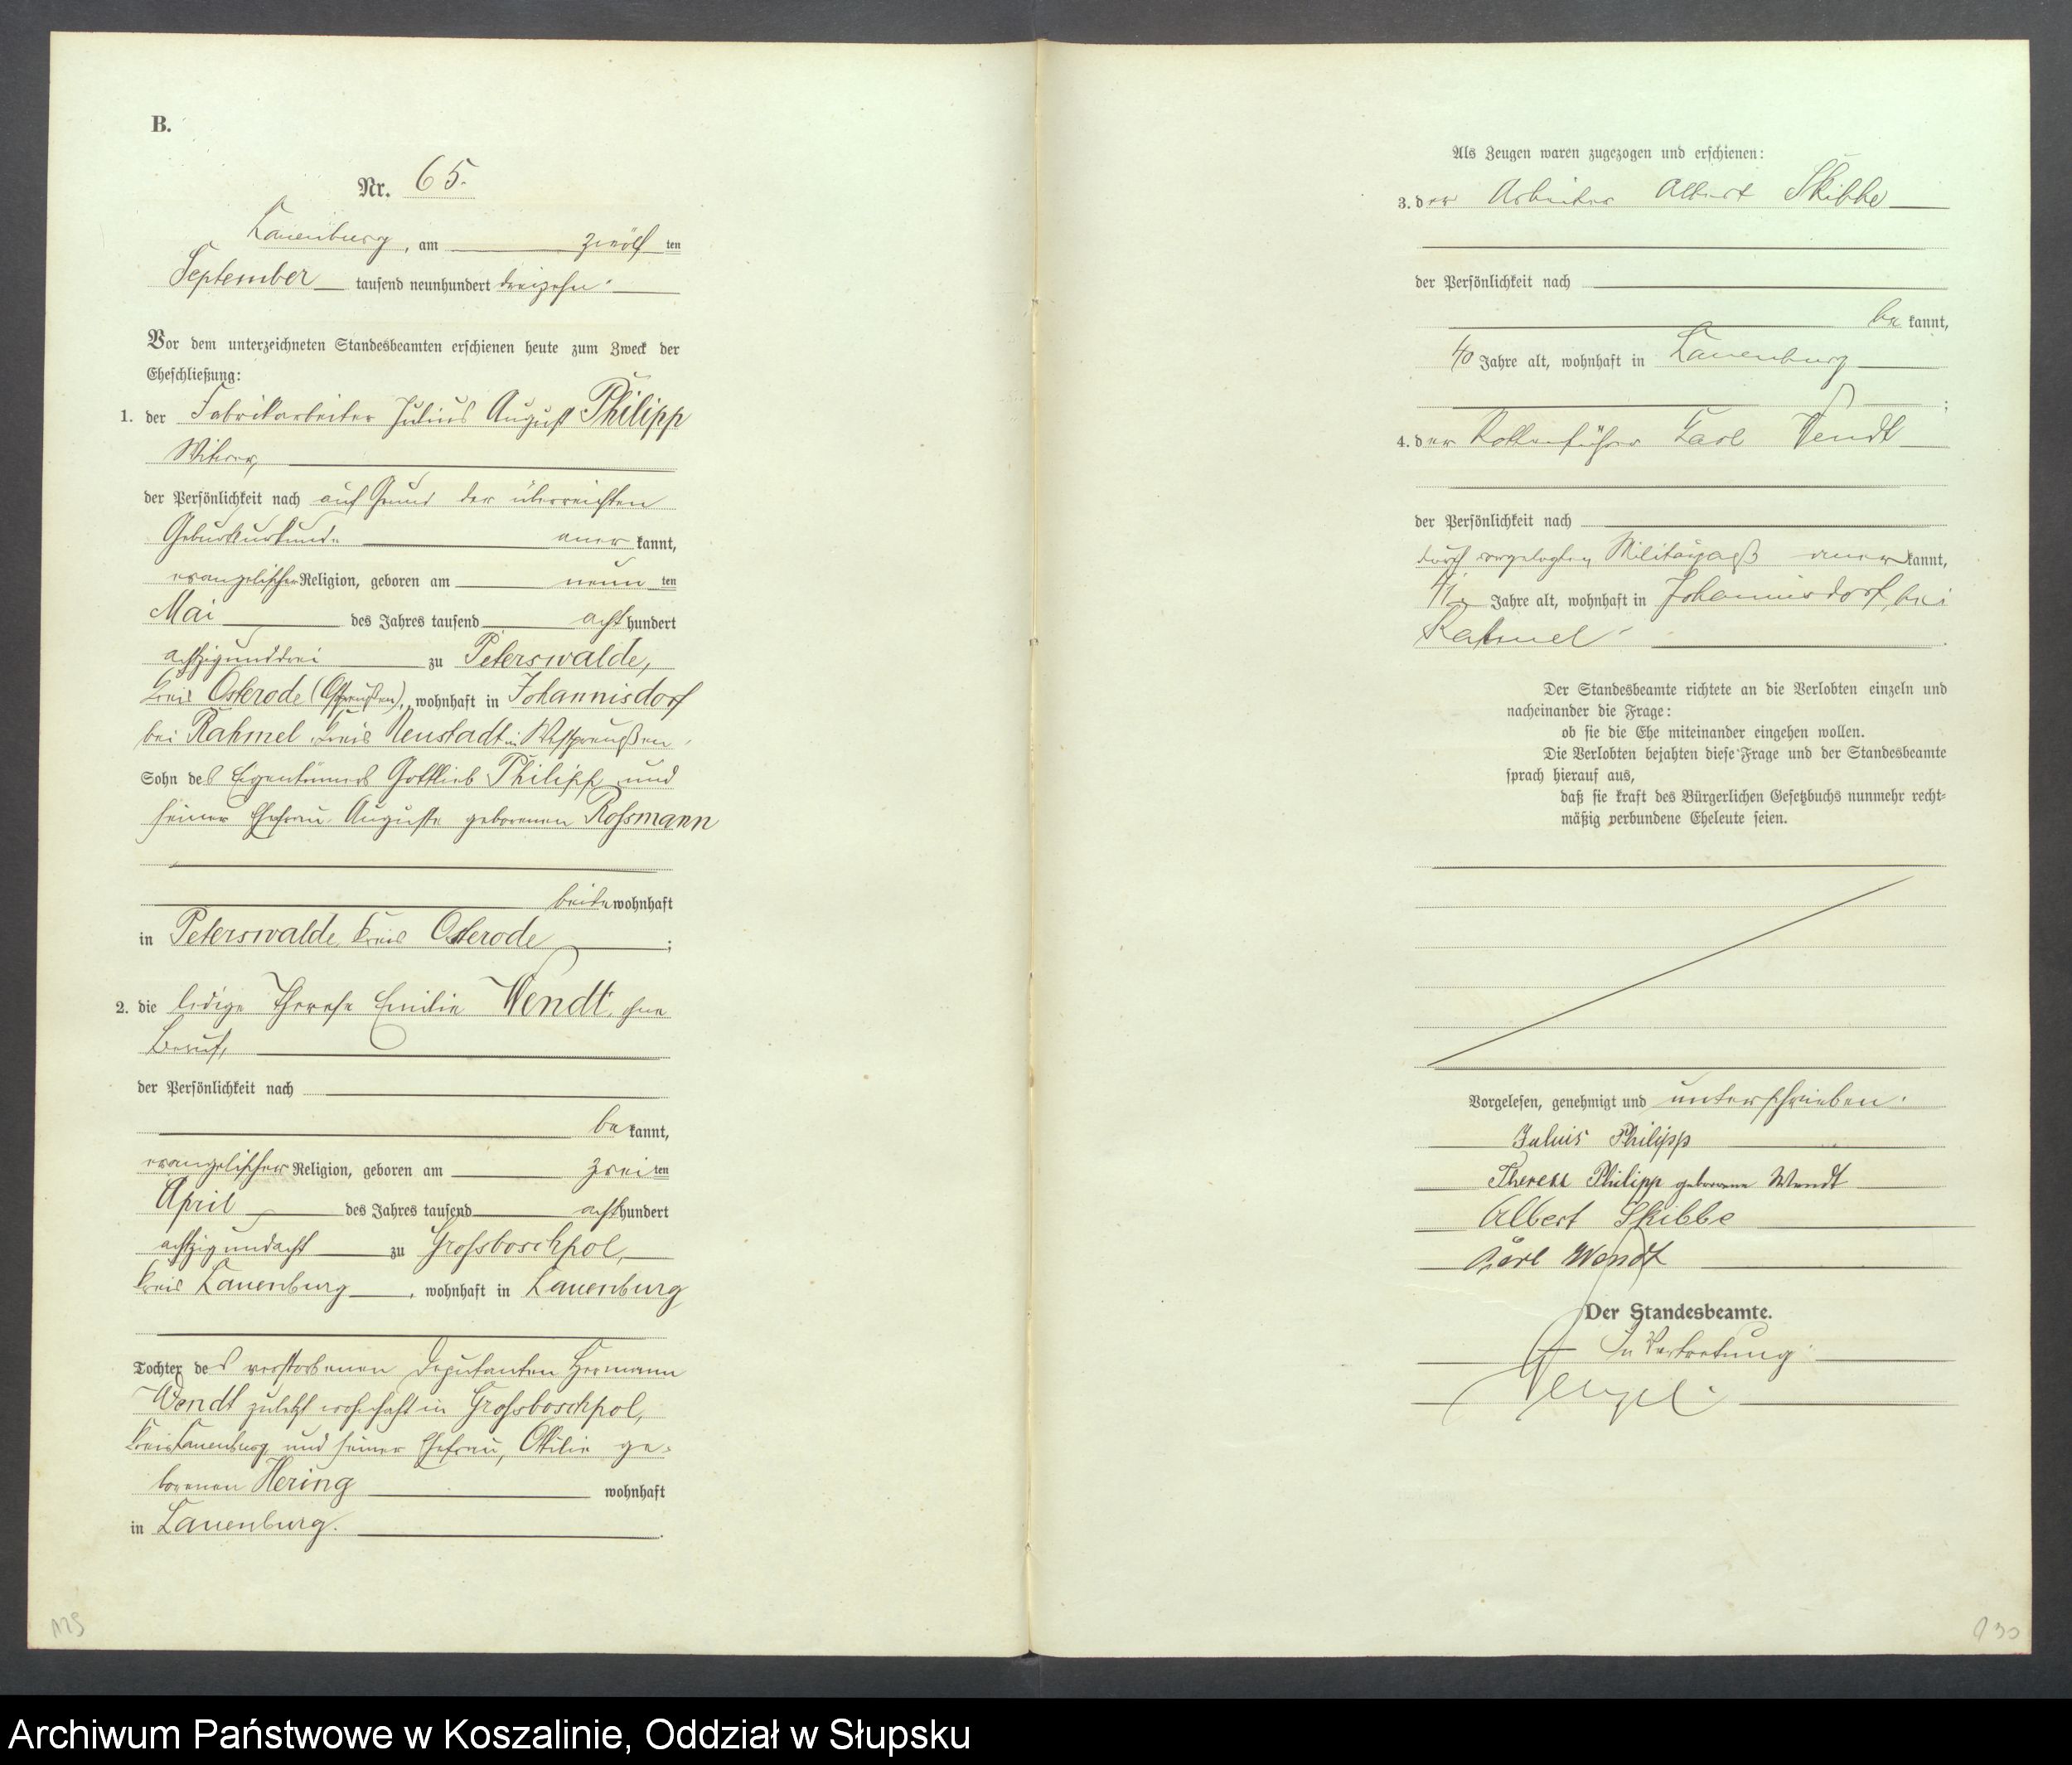 B.
Nr. 65.
Lauenburg, am zwölf ten
September tausend neunhundert dreizehn.
Vor dem unterzeichneten Standesbeamten erschienen heute zum Zweck der
Eheschließung:
1. der Fabrikarbeiter Julius August Philipp
Witwer,
der Persönlichkeit nach auf Grund der überreichten
Geburtsurkunde anerkannt,
evangelischer Religion, geboren am neun ten
Mai des Jahres tausend acht hundert
achtzigunddrei zu Peterswalde,
Kreis Osterode (Ostpreußen), wohnhaft in Johannisdorf
bei Rahmel Kreis Neustadt in Westpreußen,
Sohn des Eigentümers Gottlieb Philipp und
seiner Ehefrau Auguste geborenen Rossmann
beide wohnhaft
in Peterswalde, Kreis Osterode ;
2. die ledige Therese Emilie Wendt, ohne
Beruf,
der Persönlichkeit nach
bekannt,
evangelischer Religion, geboren am zwei ten
April des Jahres tausend acht hundert
achtzigundacht zu Grossboschpol,
Kreis Lauenburg, wohnhaft in Lauenburg
Tochter des verstorbenen Deputanten Hermann
Wendt zuletzt wohnhaft in Grossboschpol,
Kreis Lauenburg, und seiner Ehefrau, Ottilie ge-
borenen Hering wohnhaft
in Lauenburg.
Als Zeugen waren zugezogen und erschienen:
3. der Arbeiter Albert Skibbe
der Persönlichkeit nach
bekannt,
40 Jahre alt, wohnhaft in Lauenburg
;
4. der Rottenführer Karl Wendt
der Persönlichkeit nach
durch vorgelegten Militärpaß anerkannt,
Jahre alt, wohnhaft in Johannisdorf bei
Rahmel.
Der Standesbeamte richtete an die Verlobten einzeln und
nacheinander die Frage:
ob sie die Ehe miteinander eingehen wollen.
Die Verlobten bejahten diese Frage und der Standesbeamte
sprach hierauf aus,
daß sie kraft des Bürgerlichen Gesetzbuchs nunmehr recht-
mäßig verbundene Eheleute seien.
Vorgelesen, genehmigt und unterschrieben.
Julius Philipp
Therese Philipp geborene Wendt
Albert Skibbe
Karl Wendt
Der Standesbeamte.
In Vertretung
129
130
Archiwum Państwowe w Koszalinie, Oddział w Słupsku